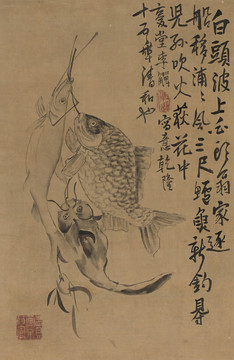 白頭波上白頭翁家逐
船移浦〻風三尺鱸魚新釣得
兒孫吹火荻花中
復堂李鱓寫意乾隆
十年清和也